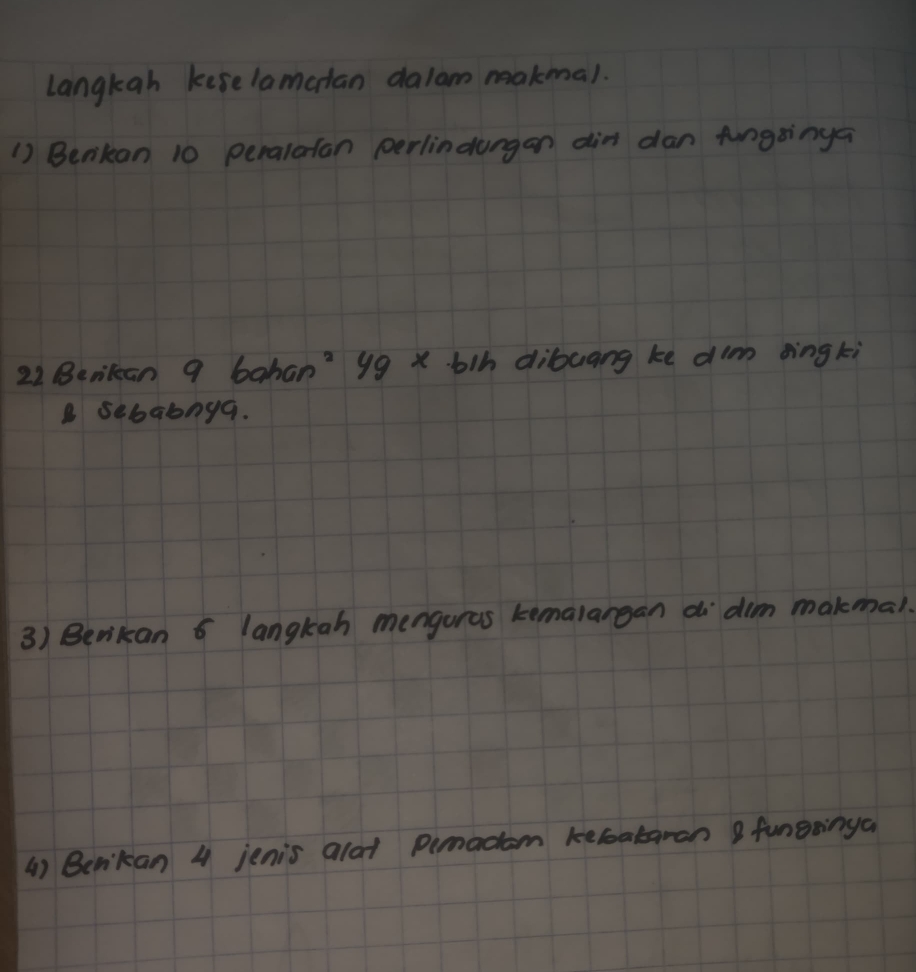 Langkah keselamatan dalam makmal.
1) Berikan 10 peralatan perlindungan diri dan fungsinya
2) Berikan 9 bahan² yg x blh dibuang ke dlm singki
& sebabnya.
3) Berikan 6 langkah mengurus kemalangan di dlm makmal.
4) Berikan 4 jenis alat pemadam kebakaran & fungsinya